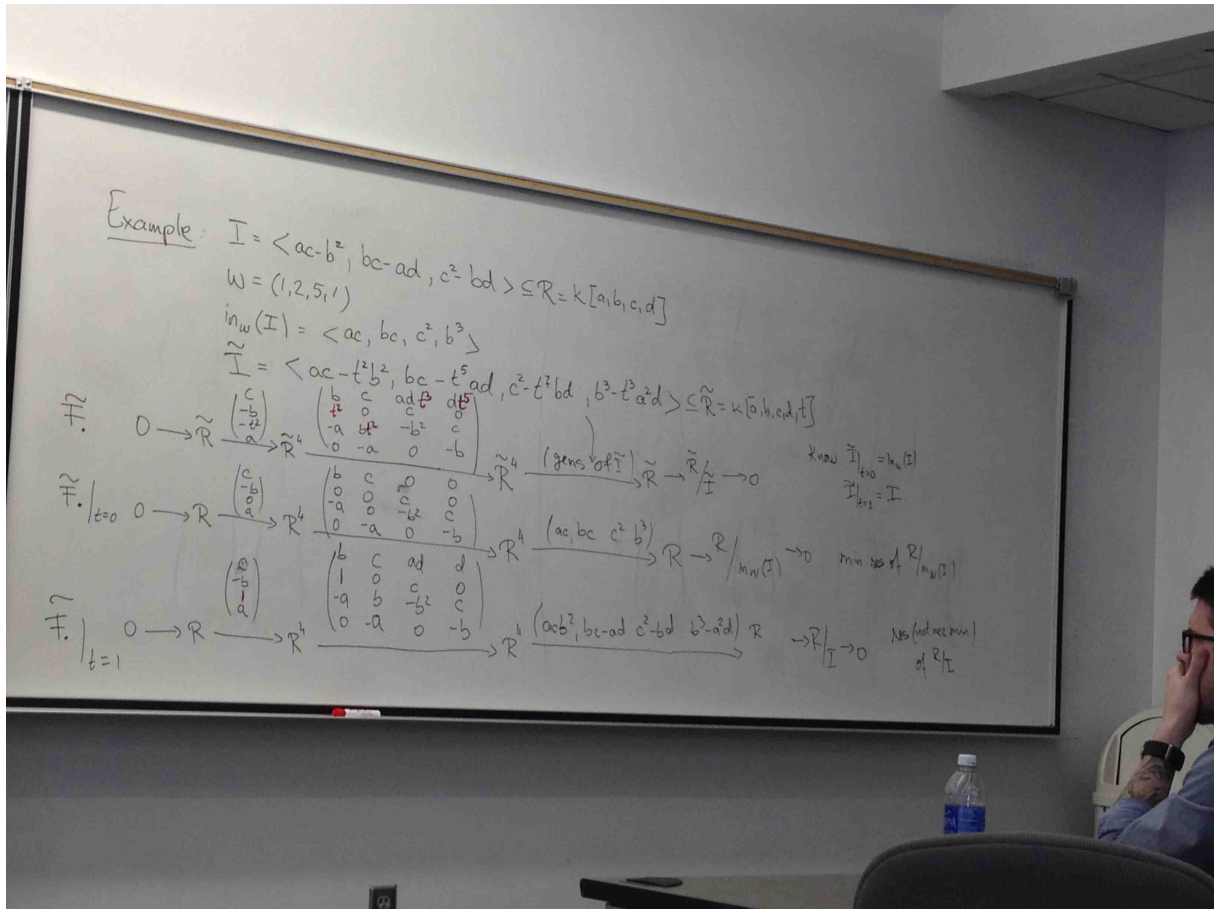 Example: I = < ac-b², bc-ad, c²-bd > ⊆ R = k[a,b,c,d]
w = (1,2,5,1)
in_w(I) = < ac, bc, c², b³ >
Ĩ = < ac-t²b², bc-t⁵ad, c²-t⁷bd, b³-t³a²d > ⊆ R̃ = k[a,b,c,d,t]
F̃. 0 → R̃ --(c; -b; -t²; a)--> R̃⁴ --(b c adt³ dt⁵; t² 0 c 0; -a bt² -b² c; 0 -a 0 -b)--> R̃⁴ --(gens of Ĩ)--> R̃ → R̃/Ĩ → 0
Know Ĩ|t=0 = in_w(I)
Ĩ|t=1 = I
F̃.|t=0 0 → R --(c; -b; 0; a)--> R⁴ --(b c 0 0; 0 0 c 0; -a 0 -b² c; 0 -a 0 -b)--> R⁴ --(ac, bc c² b³)--> R → R/in_w(I) → 0 min. res of R/in_w(I)
F̃.|t=1 0 → R --(c; -b; 1; a)--> R⁴ --(b c ad d; 1 0 c 0; -a b -b² c; 0 -a 0 -b)--> R⁴ --(acb², bc-ad c²-bd b³-a²d)--> R → R/I → 0 res (not nec min)
of R/I